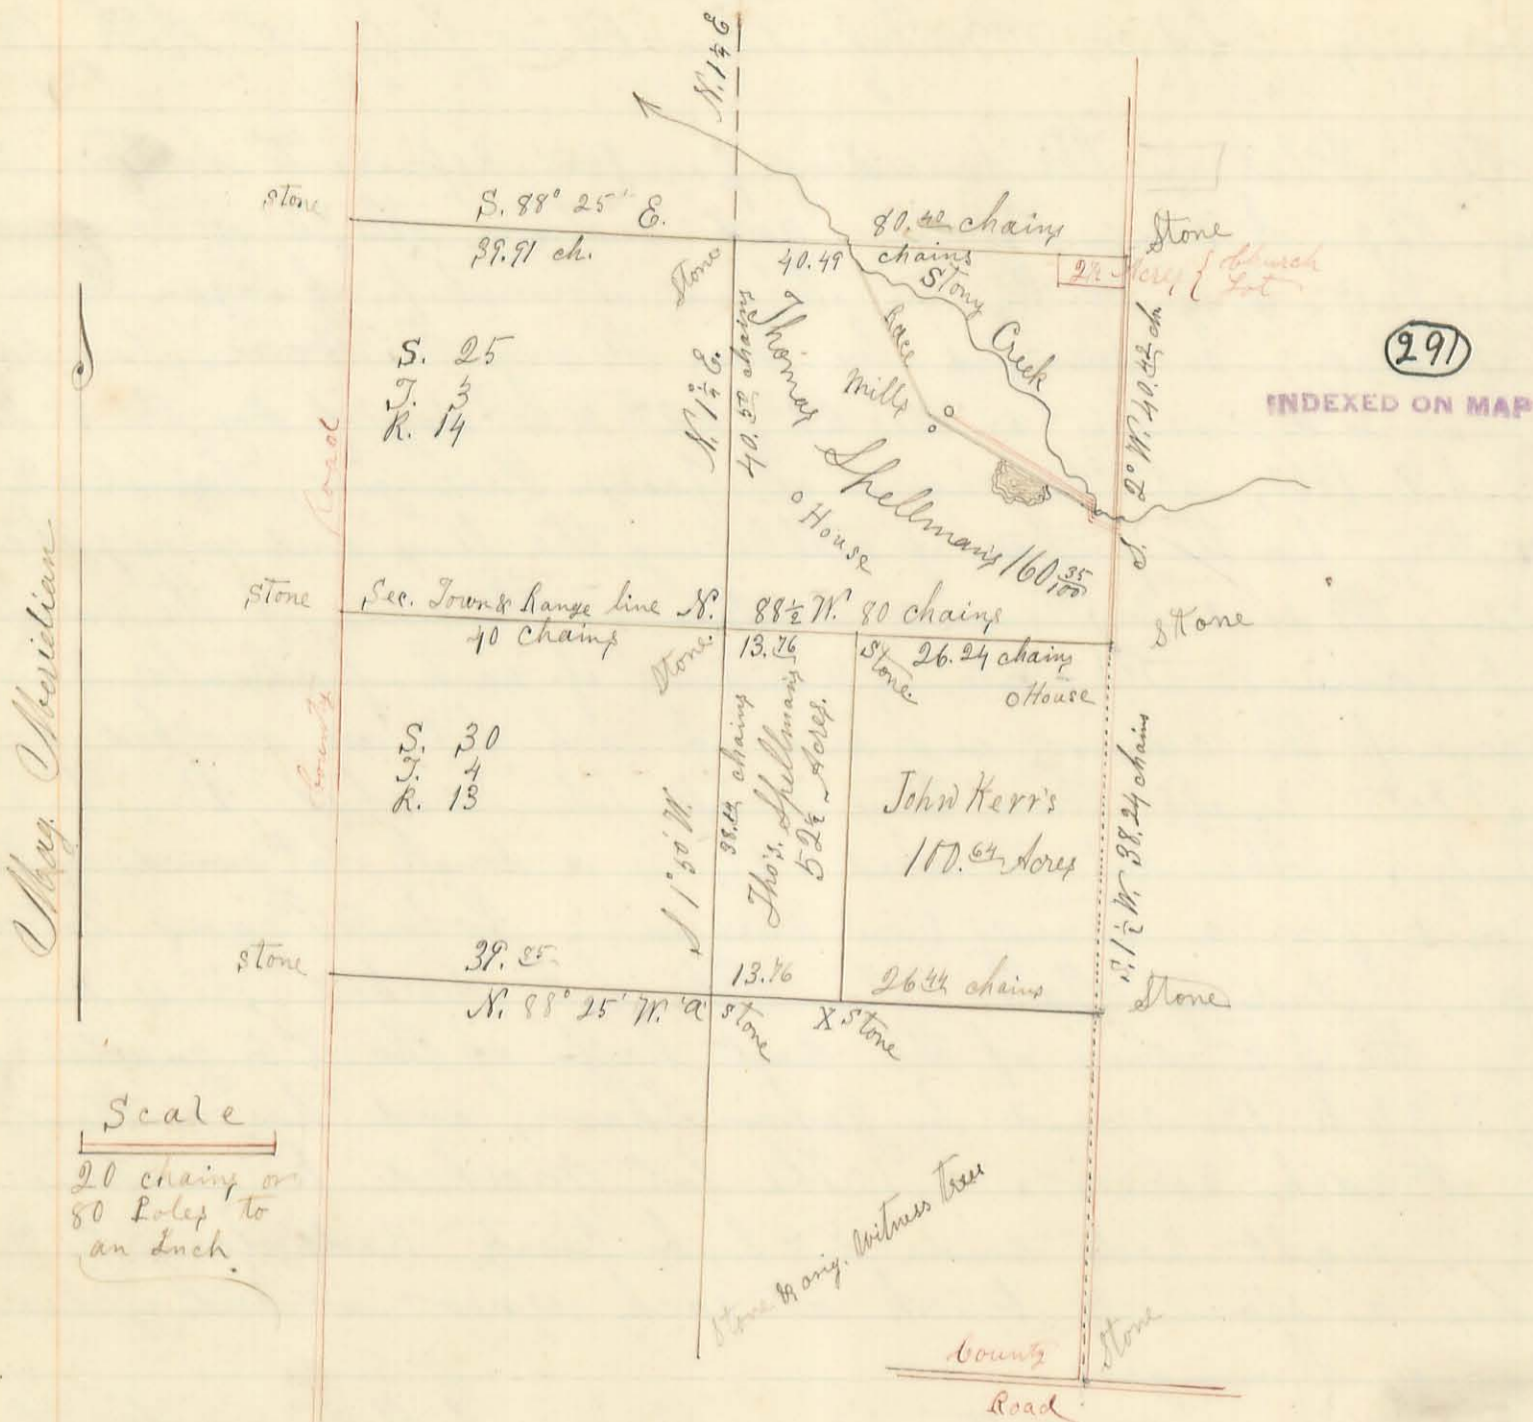 N. 1¼ E
stone
S. 88° 25' E.
80.40 chains
Stone
39.91 ch.
Stone
40.49 chains
2½ Acres { Church
Lot
Stony Creek
Race
Mills
S. 25
T. 3
R. 14
N. 1¼ E.
40.50 chains
Thomas Spellman's 160 35/100
House
S. 2° W. 40.42 ch.
291
INDEXED ON MAP
Road
County
Mag. Meridian
stone
Sec. Town & Range line N. 88½ W. 80 chains
40 chains
Stone
13.76
Stone.
26.24 chains
Stone
House
S. 30
T. 4
R. 13
S 1° 50' W.
38.14 chains
Tho's. Spellman's
52½ Acres.
John Kerr's
100.64 Acres
S. 1½ W. 38.24 chains
stone
39.85
13.76
26.44 chains
Stone
N. 88° 25' W. 'a'
stone
X Stone
Scale
20 chains or
80 Poles to
an Inch.
Stone & orig. witness trees
Stone
County
Road